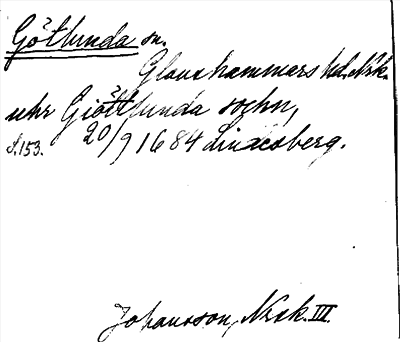 Götlunda sn.
Glanshammars hd. Nrk.
uhr Giöttlunda sochn,
S.153. 20/9 1684 Lindesberg.
Johansson, Nrk. III.